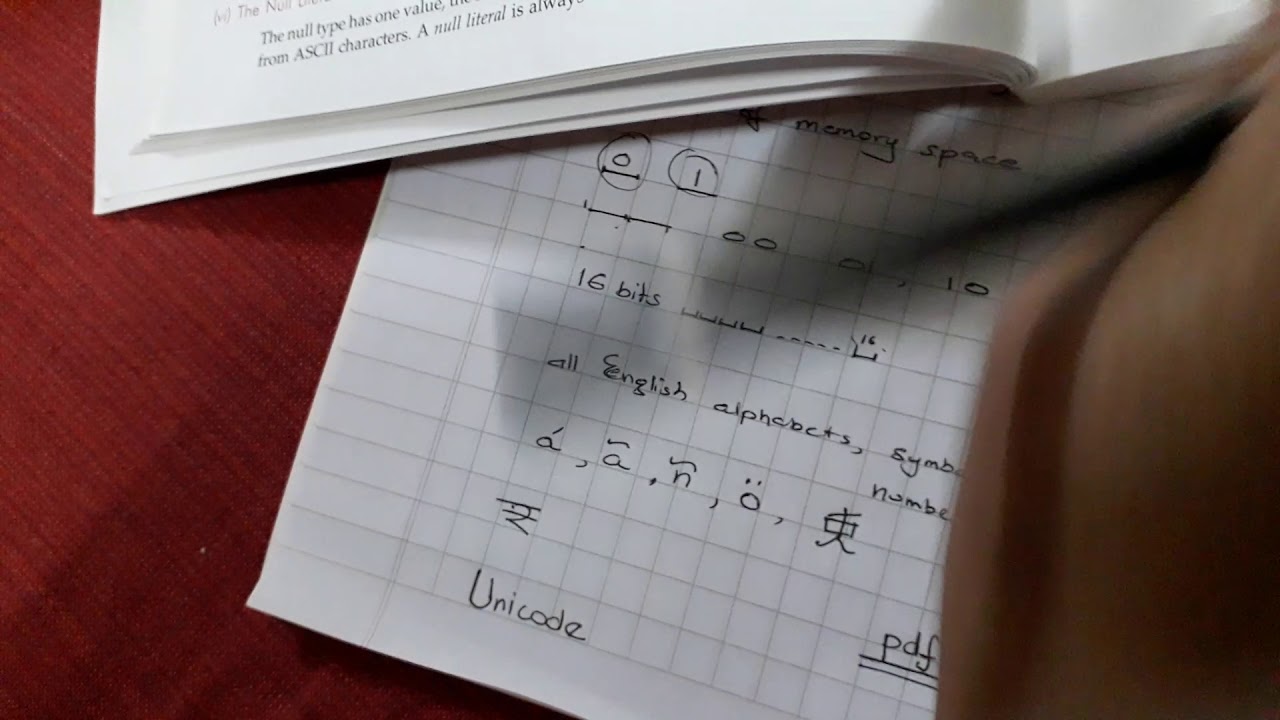 (vi) The Null
The null type has one value,
from ASCII characters. A null literal is always
of memory space
0 1
00 01, 10
16 bits
16
all English alphabets,
á, ã, ñ, ö,
Unicode
pdf